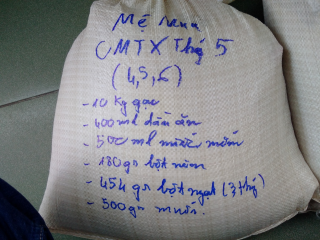 Mẹ
CMTX Thg 5
(4,5,6)
- 10 kg gạo
- 400 ml dầu ăn
- 500 ml nước mắm
- 180 gr bột nêm
- 454 gr bột ngọt (3 thg)
- 500 gr muối.